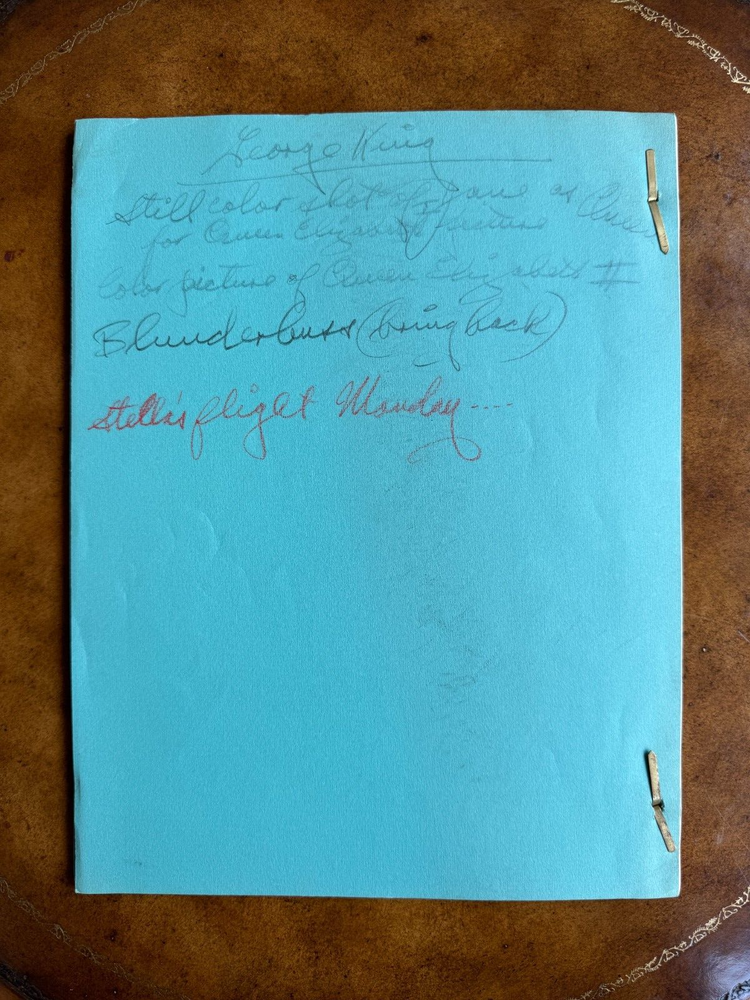 George King
Still color shot of Jane as Queen
for Queen Elizabeth picture
Color picture of Queen Elizabeth II
Blunderbuss (bring back)
Stella's flight Monday ----